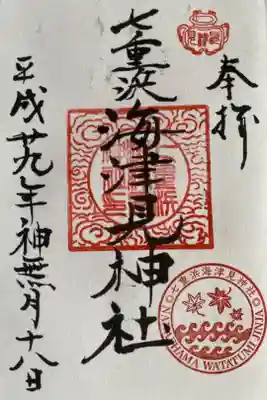 奉拝
七重浜
海津見神社
平成廿九年神無月十八日
七重浜海津見神社
NANAEHAMA WATATUMI JINJA